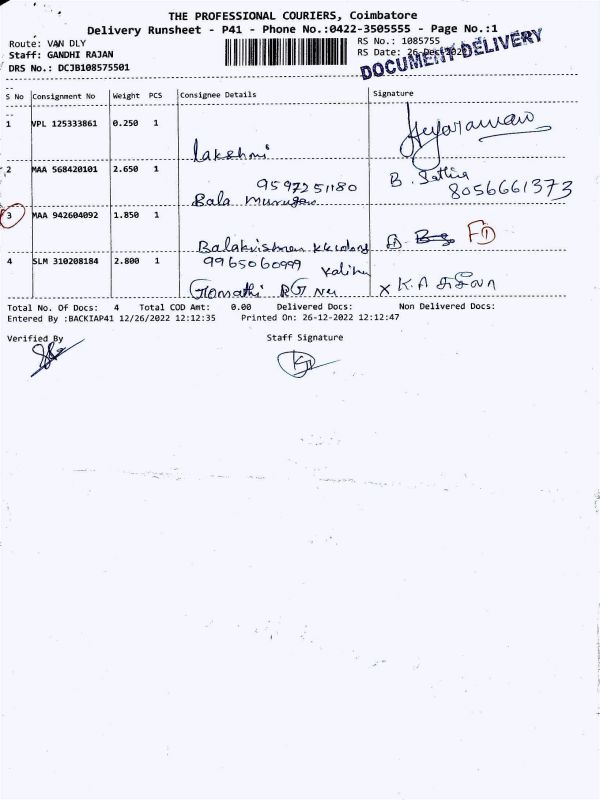 THE PROFESSIONAL COURIERS, Coimbatore
Delivery Runsheet - P41 - Phone No.:0422-3505555 - Page No.:1
Route: VAN DLY
Staff: GANDHI RAJAN
DRS No.: DCJB108575501
RS No.: 1085755
RS Date: 26-Dec-2022
DOCUMENT DELIVERY
S No Consignment No Weight PCS Consignee Details Signature
1 VPL 125333861 0.250 1
lakshmi
2 MAA 568420101 2.650 1
9597251180
B. Sathya
8056661373
Bala Murugan
3 MAA 942604092 1.850 1
Balakrishnan
4 SLM 310208184 2.800 1
9965060999
Gomathi RG x K.A
Total No. Of Docs: 4 Total COD Amt: 0.00 Delivered Docs: Non Delivered Docs:
Entered By :BACKIAP41 12/26/2022 12:12:35 Printed On: 26-12-2022 12:12:47
Verified By Staff Signature